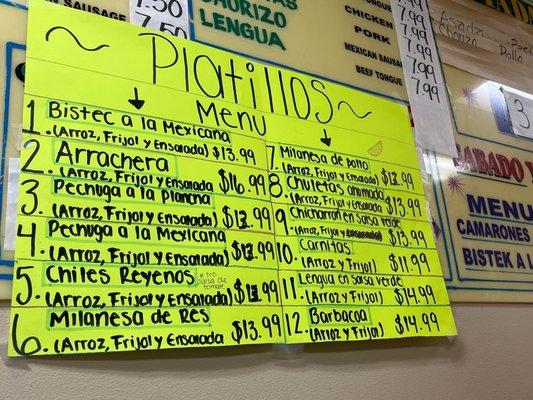 7.50
7.50
7.99
SAUSAGE
CHORIZO
LENGUA
TONGUE
CHICKEN
PORK
MEXICAN SAUSAGE
BEEF TONGUE
7.99
7.99
7.99
7.99
7.99
Asada
Chorizo
Pollo
3
~ Platillos ~
Menu
1 Bistec a la Mexicana
(Arroz, Frijol y Ensalada) $13.99
2 Arrachera
(Arroz, Frijol y Ensalada) $16.99
3 Pechuga a la Plancha
(Arroz, Frijol y Ensalada) $13.99
4. Pechuga a la Mexicana
(Arroz, Frijol y Ensalada) $13.99
5. Chiles Reyenos *No salsa de tomate
(Arroz, Frijol y Ensalada) $13.99
6. Milanesa de Res
(Arroz, Frijol y Ensalada $13.99
7. Milanesa de pollo
(Arroz, Frijol y Ensalada) $13.99
8 Chuletas ahumada
(Arroz, Frijol y Ensalada) $13.99
9 Chicharron en salsa verde
(Arroz, Frijol y $13.99
10. Carnitas
(Arroz y Frijol) $11.99
11. Lengua en salsa verde
(Arroz y Frijol) $14.99
12. Barbacoa
(Arroz y Frijol) $14.99
SABADO Y
MENU
CAMARONES
BISTEC A L